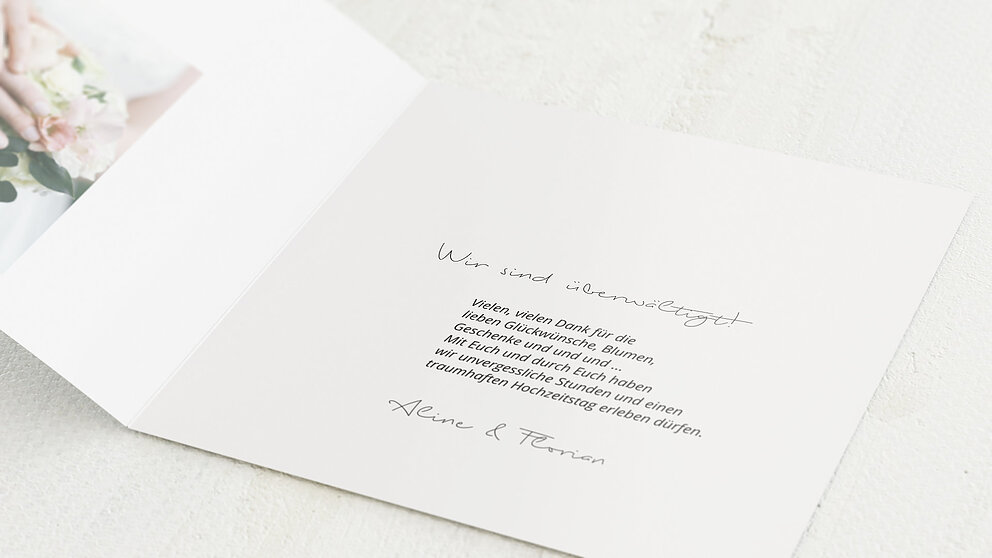 Wir sind überwältigt!
Vielen, vielen Dank für die
lieben Glückwünsche, Blumen,
Geschenke und und und ...
Mit Euch und durch Euch haben
wir unvergessliche Stunden und einen
traumhaften Hochzeitstag erleben dürfen.
Aline & Florian